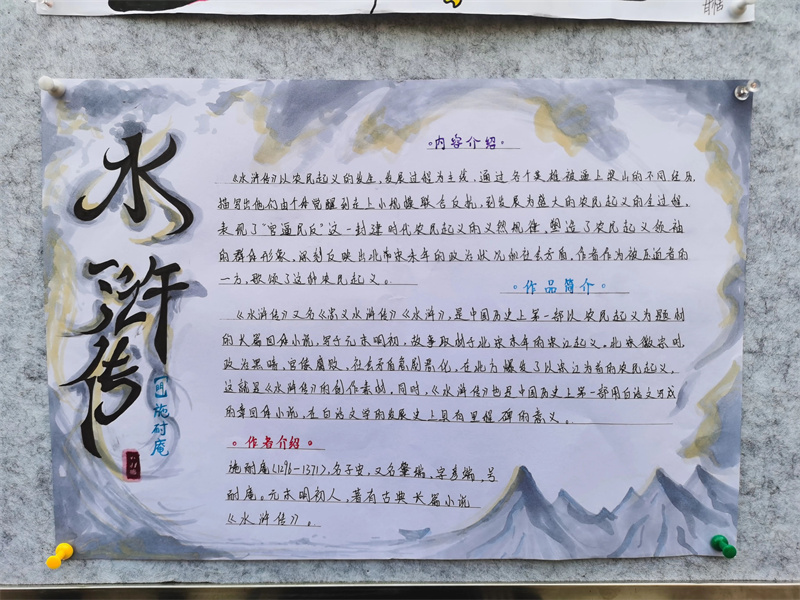 水浒传
[明]施耐庵
内容介绍
《水浒传》以农民起义的发生,发展过程为主线,通过各个英雄被逼上梁山的不同经历,
描写出他们由个体觉醒到走上小规模联合反抗,到发展为盛大的农民起义的全过程,
表现了"官逼民反"这一封建时代农民起义的必然规律,塑造了农民起义领袖
的群体形象,深刻反映出北宋末年的政治状况和社会矛盾,作者作为被压迫者的
一方,歌颂了这种农民起义。
作品简介
《水浒传》又名《忠义水浒传》《水浒》,是中国历史上第一部以农民起义为题材
的长篇回体小说,写于元末明初,故事取材于北宋末年的宋江起义。北宋徽宗时,
政治黑暗,官僚腐败,社会矛盾急剧恶化,在此为爆发了以宋江为首的农民起义,
这就是《水浒传》的创作素材,同时,《水浒传》也是中国历史上第一部用白话文写成
的章回体小说,在白话文学的发展史上具有里程碑的意义。
作者介绍
施耐庵(1296-1371),名子安,又名肇瑞,字彦端,号
耐庵。元末明初人,著有古典长篇小说
《水浒传》。